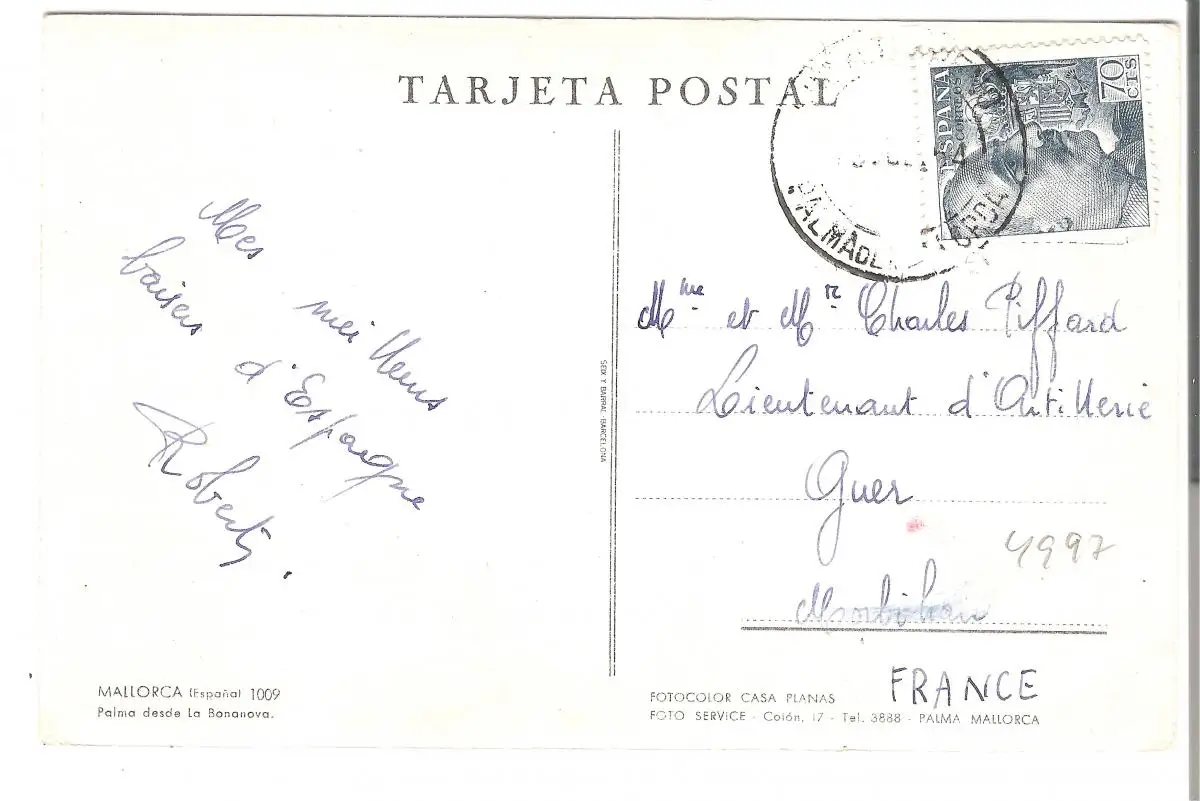 TARJETA POSTAL
ESPAÑA
CORREOS
70
CTS
PALMA DE
Mes
meilleurs
baisers
d'Espagne
Robert
Mme et Mr Charles Piffard
Lieutenant d'Artillerie
Guer
4997
Morbihan
FRANCE
SEIX Y BARRAL BARCELONA
MALLORCA (España) 1009
Palma desde La Bonanova.
FOTOCOLOR CASA PLANAS
FOTO SERVICE - Colón, 17 - Tel. 3888 - PALMA MALLORCA